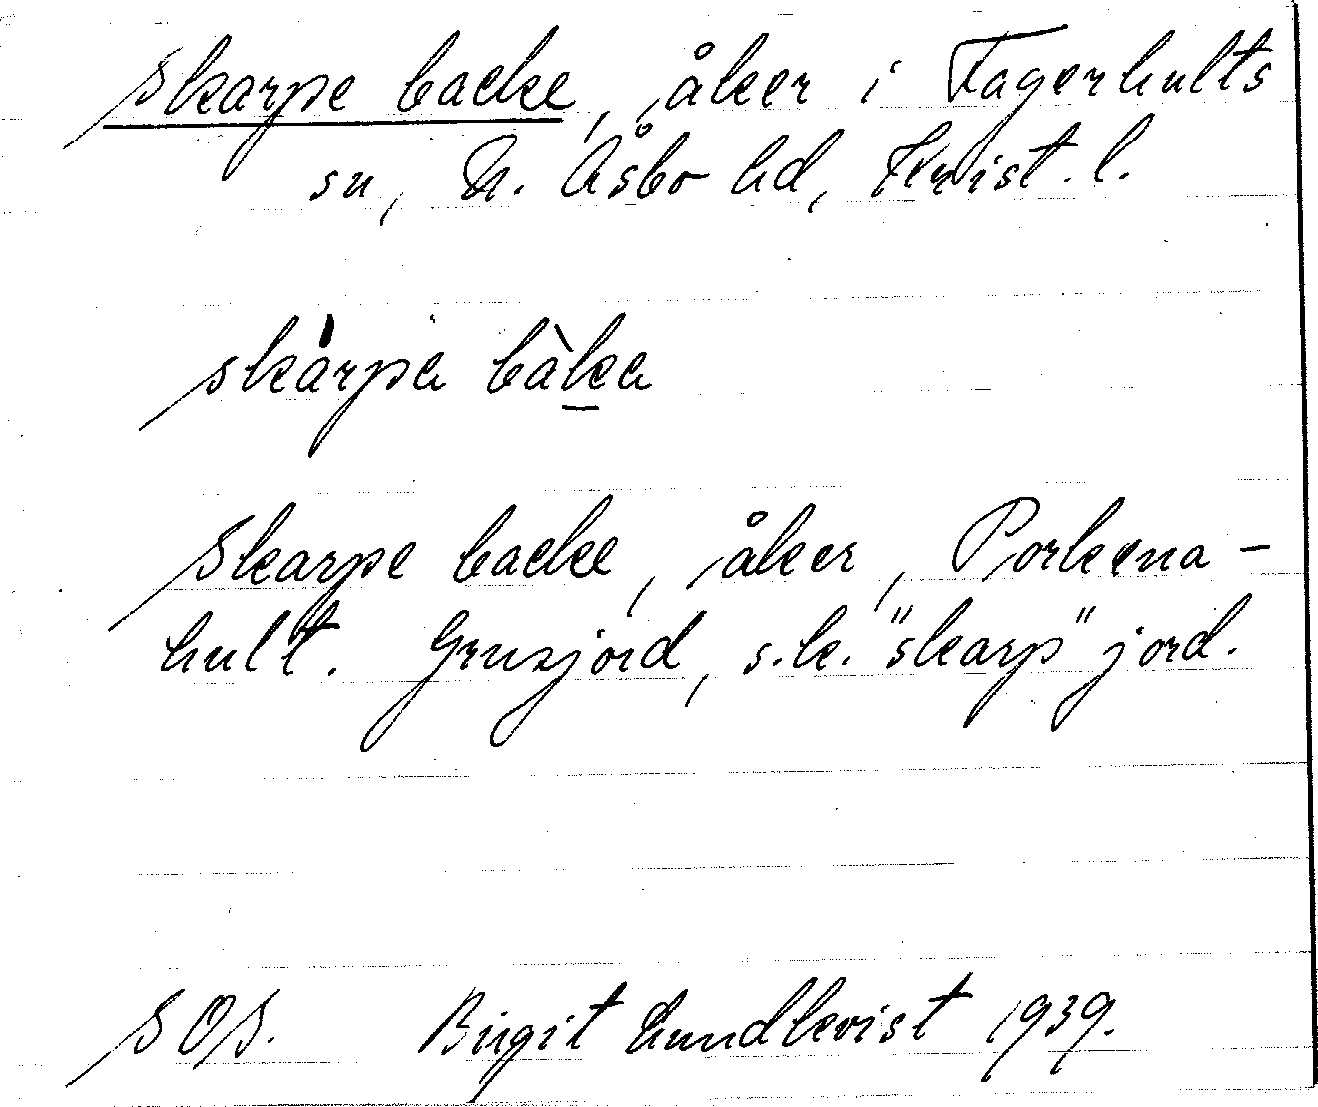 Skarpe backe, åker i Fagerhults
sn, N. Åsbo hd, Krist. l.
skàrpa bàka
Skarpe backe, åker, Porkena-
hult. Grusjord, s.k. "skarp" jord.
SOS. Birgit Lundkvist 1939.